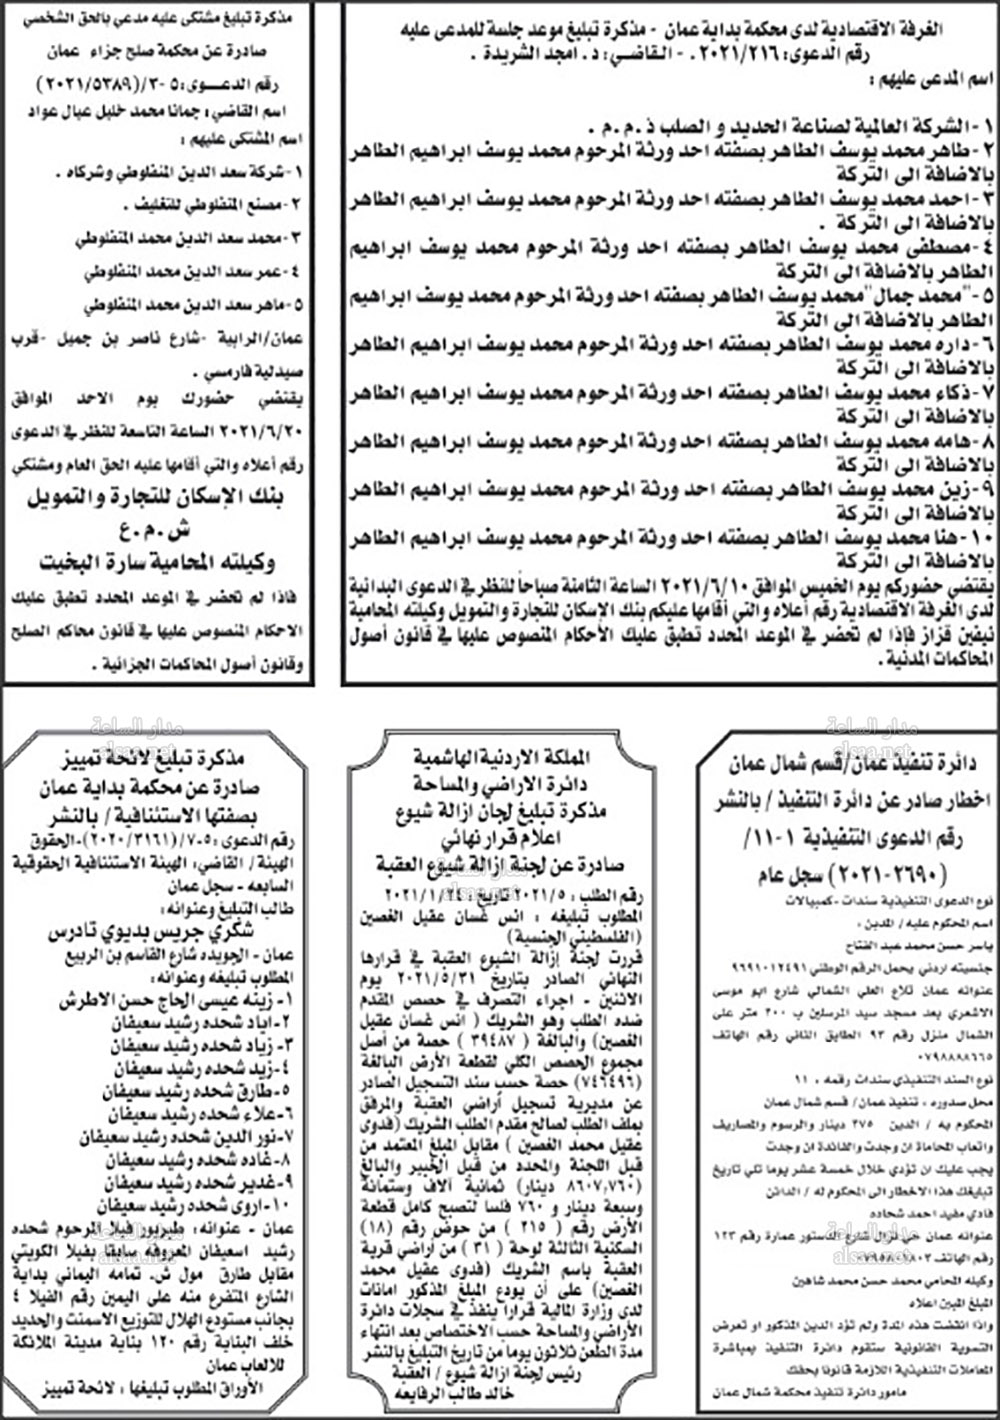 الغرفة الاقتصادية لدى محكمة بداية عمان - مذكرة تبليغ موعد جلسة للمدعى عليه
رقم الدعوى: ٢٠٢١/٢١٦ - القاضي: د. امجد الشريدة .
اسم المدعى عليهم :
١-الشركة العالمية لصناعة الحديد و الصلب ذ.م.م .
٢-طاهر محمد يوسف الطاهر بصفته احد ورثة المرحوم محمد يوسف ابراهيم الطاهر
بالاضافة الى التركة
٣-احمد محمد يوسف الطاهر بصفته احد ورثة المرحوم محمد يوسف ابراهيم الطاهر
بالاضافة الى التركة .
٤-مصطفى محمد يوسف الطاهر بصفته احد ورثة المرحوم محمد يوسف ابراهيم
الطاهر بالاضافة الى التركة
٥-"محمد جمال"محمد يوسف الطاهر بصفته احد ورثة المرحوم محمد يوسف ابراهيم
الطاهر بالاضافة الى التركة
٦-داره محمد يوسف الطاهر بصفته احد ورثة المرحوم محمد يوسف ابراهيم الطاهر
بالاضافة الى التركة
٧-ذكاء محمد يوسف الطاهر بصفته احد ورثة المرحوم محمد يوسف ابراهيم الطاهر
بالاضافة الى التركة
٨-هامه محمد يوسف الطاهر بصفته احد ورثة المرحوم محمد يوسف ابراهيم الطاهر
بالاضافة الى التركة
٩-زين محمد يوسف الطاهر بصفته احد ورثة المرحوم محمد يوسف ابراهيم الطاهر
بالاضافة الى التركة
١٠-هنا محمد يوسف الطاهر بصفته احد ورثة المرحوم محمد يوسف ابراهيم الطاهر
بالاضافة الى التركة
يقتضي حضوركم يوم الخميس الموافق ٢٠٢١/٦/١٠ الساعة الثامنة صباحاً للنظر في الدعوى البدائية
لدى الغرفة الاقتصادية رقم أعلاه والتي أقامها عليكم بنك الإسكان للتجارة والتمويل وكيلته المحامية
نيفين قزاز فإذا لم تحضر في الموعد المحدد تطبق عليك الأحكام المنصوص عليها في قانون أصول
المحاكمات المدنية .
مذكرة تبليغ مشتكى عليه مدعي بالحق الشخصي
صادرة عن محكمة صلح جزاء عمان
رقم الدعوى: ٥-٣/(٢٠٢١/٥٣٨٩)
اسم القاضي: جمانا محمد خليل عيال عواد
اسم المشتكى عليهم :
١-شركة سعد الدين المنفلوطي وشركاه .
٢-مصنع المنفلوطي للتغليف .
٣-محمد سعد الدين محمد المنفلوطي
٤-عمر سعد الدين محمد المنفلوطي
٥-ماهر سعد الدين محمد المنفلوطي
عمان/الرابية -شارع ناصر بن جميل -قرب
صيدلية فارمسي .
يقتضي حضورك يوم الاحد الموافق
٢٠٢١/٦/٢٠ الساعة التاسعة للنظر في الدعوى
رقم أعلاه والتي أقامها عليه الحق العام ومشتكي
بنك الإسكان للتجارة والتمويل
ش.م.ع
وكيلته المحامية سارة البخيت
فاذا لم تحضر في الموعد المحدد تطبق عليك
الاحكام المنصوص عليها في قانون محاكم الصلح
وقانون أصول المحاكمات الجزائية .
دائرة تنفيذ عمان/قسم شمال عمان
اخطار صادر عن دائرة التنفيذ / بالنشر
رقم الدعوى التنفيذية ١-١١/
(٢٦٩٠-٢٠٢١) سجل عام
نوع الدعوى التنفيذية سندات -كمبيالات
اسم المحكوم عليه / المدين :
ياسر حسن محمد عبد الفتاح
جنسيته اردني يحمل الرقم الوطني ٩٦٩١٠١٢٤٩١
عنوانه عمان تلاع العلي الشمالي شارع ابو موسى
الاشعري بعد مسجد سيد المرسلين ب ٢٠٠ متر على
الشمال منزل رقم ٩٣ الطابق الثاني رقم الهاتف
٠٧٩٨٨٨٨٦٦٥
نوع السند التنفيذي سندات رقمه : ١١
محل صدوره : تنفيذ عمان/ قسم شمال عمان
المحكوم به / الدين ٢٧٥ دينار والرسوم والمصاريف
واتعاب المحاماة ان وجدت والفائدة ان وجدت
يجب عليك ان تؤدي خلال خمسة عشر يوما تلي تاريخ
تبليغك هذا الاخطار الى المحكوم له / الدائن
فادي مفيد احمد شحاده
عنوانه عمان حي نزال شارع الدستور عمارة رقم ١٢٣
رقم الهاتف
وكيله المحامي محمد حسن محمد شاهين
المبلغ المبين اعلاه
واذا انقضت هذه المدة ولم تؤد الدين المذكور او تعرض
التسوية القانونية ستقوم دائرة التنفيذ بمباشرة
المعاملات التنفيذية اللازمة قانونا بحقك
مامور دائرة تنفيذ محكمة شمال عمان
المملكة الاردنية الهاشمية
دائرة الاراضي والمساحة
مذكرة تبليغ لجان ازالة شيوع
اعلام قرار نهائي
صادرة عن لجنة ازالة شيوع العقبة
رقم الطلب : ٢٠٢١/٥ تاريخ: ٢٠٢١/١/٢٤
المطلوب تبليغه : انس غسان عقيل الغصين
(الفلسطيني الجنسية)
قررت لجنة إزالة الشيوع العقبة في قرارها
النهائي الصادر بتاريخ ٢٠٢١/٥/٣١ يوم
الاثنين - اجراء التصرف في حصص المقدم
ضده الطلب وهو الشريك ( انس غسان عقيل
الغصين) والبالغة ( ٣٩٤٨٧ ) حصة من أصل
مجموع الحصص الكلي لقطعة الأرض البالغة
(٧٤٦٤٩٦) حصة حسب سند التسجيل الصادر
عن مديرية تسجيل أراضي العقبة والمرفق
بملف الطلب لصالح مقدم الطلب الشريك (فدوى
عقيل محمد الغصين ) مقابل المبلغ المعتمد من
قبل اللجنة والمحدد من قبل الخبير والبالغ
(٨٦٠٧,٧٦٠ دينار) ثمانية آلاف وستمائة
وسبعة دينار و ٧٦٠ فلسا لتصبح كامل قطعة
الأرض رقم ( ٢١٥ ) من حوض رقم (١٨)
السكنية الثالثة لوحة (٣١) من أراضي قرية
العقبة باسم الشريك (فدوى عقيل محمد
الغصين) على أن يودع المبلغ المذكور امانات
لدى وزارة المالية قرارا ينفذ في سجلات دائرة
الأراضي والمساحة حسب الاختصاص بعد انتهاء
مدة الطعن ثلاثون يوما من تاريخ التبليغ بالنشر
رئيس لجنة ازالة شيوع / العقبة
خالد طالب الرفايعه
مذكرة تبليغ لائحة تمييز
صادرة عن محكمة بداية عمان
بصفتها الاستئنافية / بالنشر
رقم الدعوى: ٥-٧/(٢٠٢٠/٣١٦١)-الحقوق
الهيئة / القاضي: الهيئة الاستئنافية الحقوقية
السابعه - سجل عمان
طالب التبليغ وعنوانه:
شكري جريس بديوي تادرس
عمان - الجويده شارع القاسم بن الربيع
المطلوب تبليغه وعنوانه:
١- زينه عيسى الحاج حسن الاطرش
٢-اياد شحده رشيد سعيفان
٣- زياد شحده رشيد سعيفان
٤-زيد شحده رشيد سعيفان
٥-طارق شحده رشيد سعيفان
٦-علاء شحده رشيد سعيفان
٧-نور الدين شحده رشيد سعيفان
٨-غاده شحده رشيد سعيفان
٩-غدير شحده رشيد سعيفان
١٠-اروى شحده رشيد سعيفان
عمان - عنوانه: طبربور فيلا المرحوم شحده
رشيد اسعيفان المعروفه سابقا بفيلا الكويتي
مقابل طارق مول ش. تمامه اليماني بداية
الشارع المتفرع منه على اليمين رقم الفيلا ٤
بجانب مستودع الهلال للتوزيع الاسمنت والحديد
خلف البناية رقم ١٢٠ بناية مدينة الملائكة
للالعاب عمان
الأوراق المطلوب تبليغها : لائحة تمييز
مدار الساعة
alsaa.net
مدار الساعة
alsaa.net
مدار الساعة
alsaa.net
مدار الساعة
alsaa.net
مدار الساعة
alsaa.net